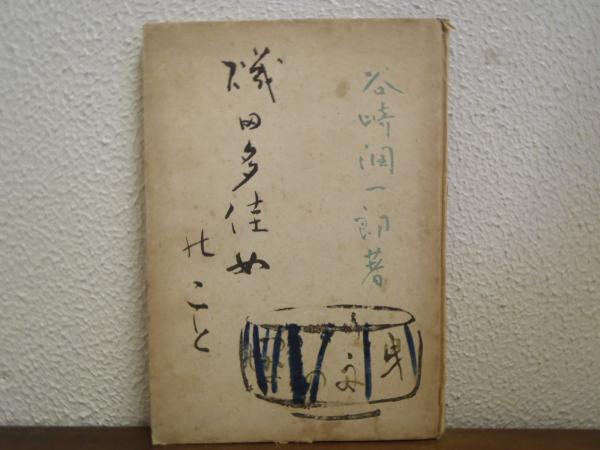 谷崎潤一郎著
磯田多佳女
のこと